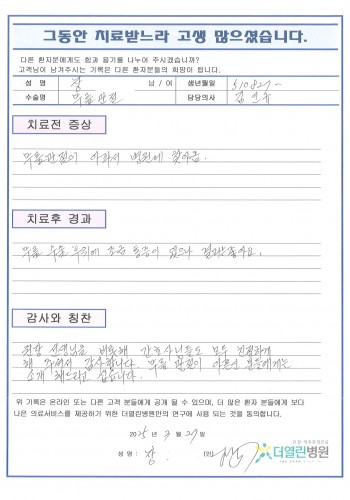 그동안 치료받느라 고생 많으셨습니다.
다른 환자분에게도 힘과 용기를 나누어 주시겠습니까?
고객님이 남겨주시는 기록은 다른 환자분들의 희망이 됩니다.
성 명 장 남 / 여 생년월일 510827-
수술명 무릎관절 담당의사 김연우
치료전 증상
무릎관절이 아파서 병원에 찾아옴.
치료후 경과
무릎 수술 부위에 조금 통증이 있으나 결과는 좋아요.
감사와 칭찬
원장 선생님을 비롯해 간호사님들도 모두 친절하게
해 주셔서 감사합니다. 무릎 관절이 아픈 분들에게는
소개 해드리고 싶습니다.
위 기록은 온라인 또는 다른 고객 분들에게 공개 될 수 있으며, 더 많은 환자 분들에게 보다
나은 의료서비스를 제공하기 위한 더열린병원만의 연구에 사용 되는 것을 동의합니다.
2025년 7월 27일
성 명 : 장 (인)
더열린병원